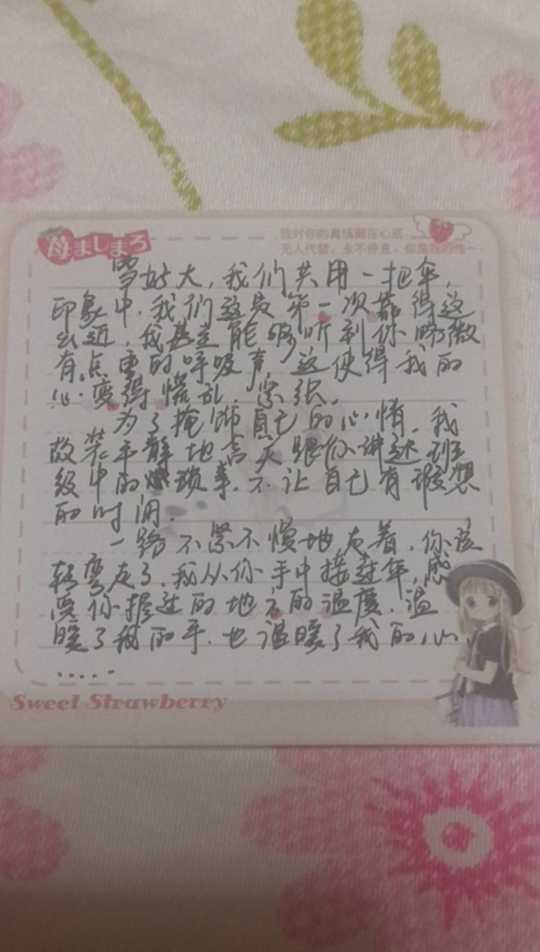 苺ましまろ
我对你的真情藏在心底
无人代替,永不停息,你是我的唯一
雪好大,我们共用一把伞,
印象中,我们这是第一次靠得这
么近,我甚至能够听到你略微
有点重的呼吸声,这使得我的
心变得慌乱,紧张.
为了掩饰自己的心情,我
故装平静地高兴跟你讲述班
级中的烦琐事,不让自己有瑕想
的时间.
一路不紧不慢地走着,你该
转弯走了,我从你手中接过伞,感
受你握过的地方的温度,温
暖了我的手,也温暖了我的心
......
Sweet Strawberry